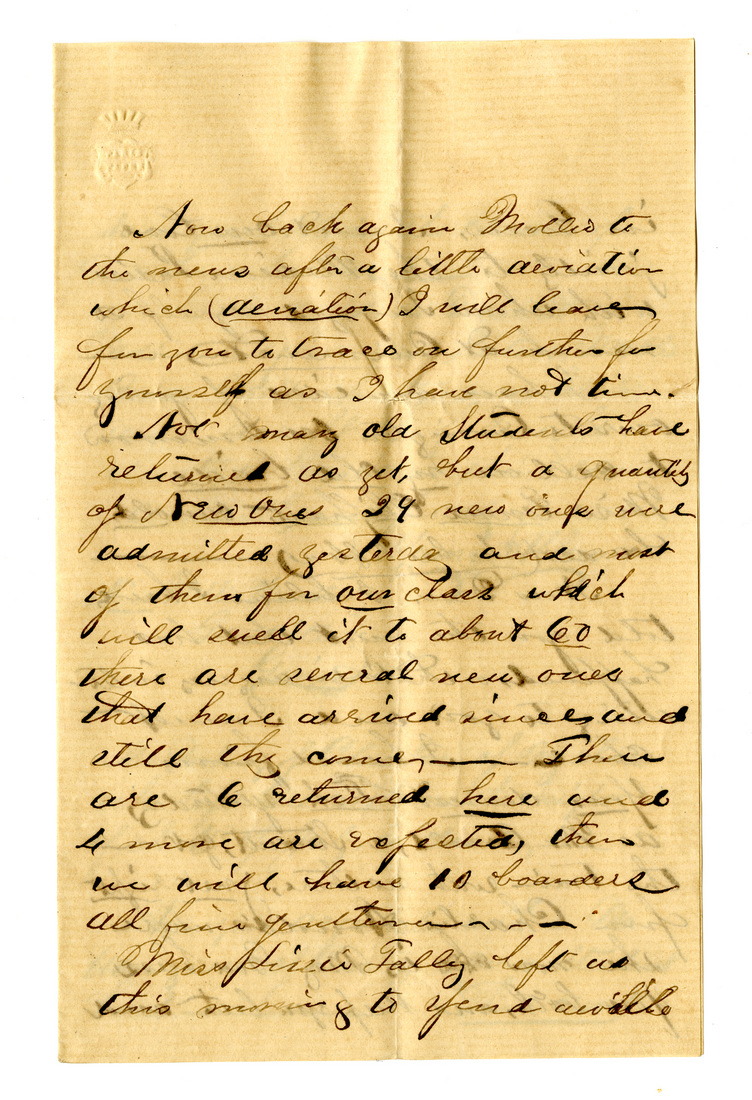 Now back again Mollie to
the news after a little deviation
which (deviation) I will leave
for you to trace on further for
yourself as I have not time.
Not many old Students have
returned as yet, but a quantity
of New Ones 29 new ones were
admitted yesterday and most
of them for our class which
will swell it to about 60
there are several new ones
that have arrived since and
still they come, — There
are 6 returned here and
4 more are expected, then
we will have 10 boarders
all fine gentlemen - - -
Miss Lizzie Tally left us
this morning to spend awhile